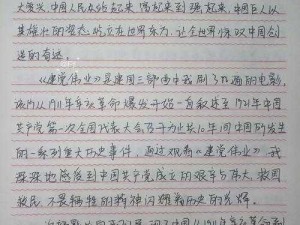 大复兴,中国人民从站起来、富起来到强起来,中国巨人以
其雄壮的姿态屹立在世界东方,让全世界惊叹中国创
造的奇迹。
《建党伟业》是建国三部曲中我刷了几遍的电影,
该片从1911年辛亥革命爆发开始一直叙述至1921年中国
共产党第一次全国代表大会召开为止共10年间中国所发生
的一系列重大历史事件,通过观看《建党伟业》,我
深深地感受到中国共产党成立的艰辛与伟大,救国
救民、不畏牺牲的精神闪耀着历史的光辉。